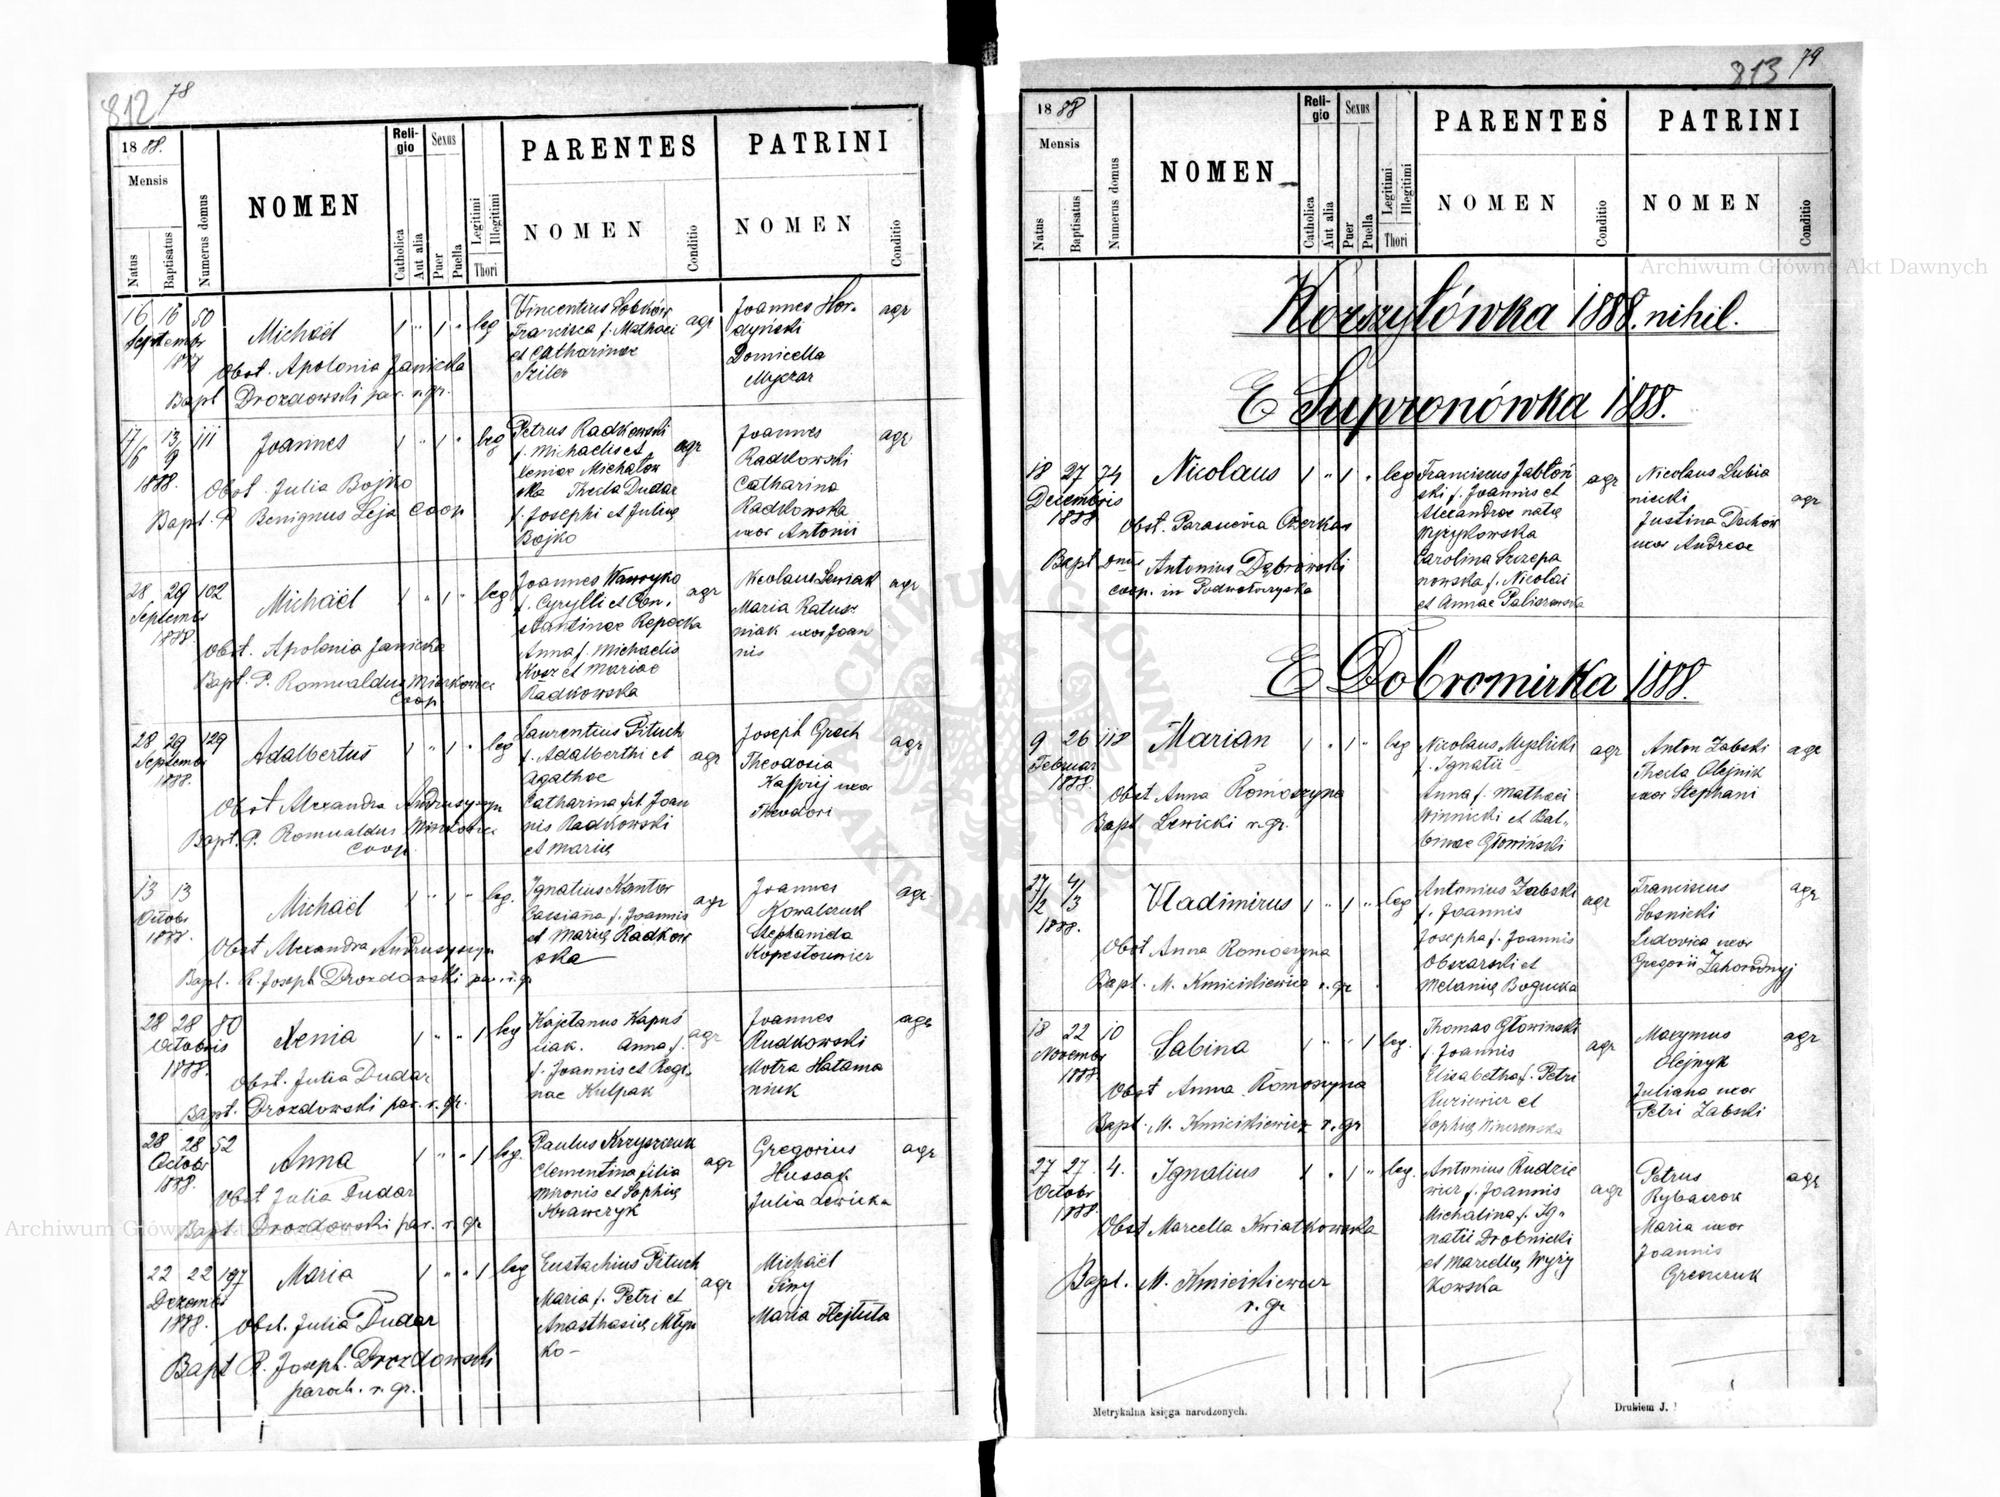 812 78
18 88.
Mensis
Natus
Baptisatus
Numerus domus
NOMEN
Religio
Catholica
Aut alia
Sexus
Puer
Puella
Legitimi
Illegitimi
Thori
PARENTES
NOMEN
Conditio
PATRINI
NOMEN
Conditio
16 16 50 Michaël 1 " 1 " leg
Septembr
Obst. Apolonia Janicka
Bapt Drozdowski par. r. gr.
Vincentius
Francisca f. Mathaei
et Catharinae
Sziler
agr
Joannes Hor-
dyński
Domicella
agr
17/6 13/9 111 Joannes 1 " 1 " leg
1888.
Obst. Julia Bojko
Bapt. P. Benignus Leja Coop
Petrus Radkowski
f. Michaelis et
Xeniae Michalow
ska Thecla Dudar
f. Josephi et Julię
Bojko
agr
Joannes
Radkowski
Catharina
Radkowska
uxor Antonii
agr
28 29 102 Michaël 1 " 1 " leg
Septembr
1888.
Obst. Apolonia Janicka
Bapt. P. Romualdus
Coop
Joannes Wawryko
f. Cyrylli et Con-
stantinae Repecka
Anna f. Michaelis
Kosz et Mariae
Radkowska
agr
Nicolaus Lewiak
Maria Ratusz
niak uxor Joan
nis
agr
28 29 129 Adalbertus 1 " 1 " leg
Septembr
1888.
Obst Alexandra Andruszyszyn
Bapt. P. Romualdus
Coop
Laurentius Pituch
f. Adalberthi et
Agathae
Catharina fil. Joan
nis Radkowski
et Marię
agr
Joseph Grech
Theodosia
Kasprij uxor
Theodori
agr
13 13 Michaël 1 " 1 " leg.
Octobr
1888.
Obst Alexandra Andruszyszyn
Bapt. R. Joseph Drozdowski par. r. gr
Ignatius Kantor
Cassiana f. Joannis
et Marię Radkow
ska
agr
Joannes
Kowalczuk
Stephanida
agr
28 28 80 Xenia 1 " " 1 leg
Octobris
1888.
Obst. Julia Dudar
Bapt. Drozdowski par. r. gr.
Kajetanus Kapuś
ciak. Anna f.
f. Joannis et Regi-
nae Kulpak
agr
Joannes
Rudkowski
Motra Hatama
niuk
agr
28 28 52 Anna 1 " " 1 leg.
Octobr
1888.
Obst Julia Dudar
Bapt Drozdowski par. r. gr
Paulus Krzyszczuk
Clementina filia
Mironis et Sophię
Krawczyk
agr
Gregorius
Hussak
Julia Lewicka
agr
22 22 197 Maria 1 " " 1 leg
Dezembr
1888.
Obst. Julia Dudar
Bapt R. Joseph. Drozdowski
paroch. r. gr.
Eustachius Pituch
Maria f. Petri et
Anasthasię Młyn
ko-
agr
Michaël
Siny
Maria Hejtuta
813 79
18 88
Mensis
Natus
Baptisatus
Numerus domus
NOMEN
Religio
Catholica
Aut alia
Sexus
Puer
Puella
Legitimi
Illegitimi
Thori
PARENTES
NOMEN
Conditio
PATRINI
NOMEN
Conditio
Korszyłówka 1888. nihil.
E Supronówka 1888.
18 27 74 Nicolaus 1 " 1 " leg
Decembris
1888
Obst. Parascevia Czerkas
Bapt Dnus Antonius Dąbrowski
coop. in Podwołoczyska
Franciscus Jabłoń
ski f. Joannis et
Alexandrae natę
Wyżykowska
Carolina Szczepa
nowska f. Nicolai
et Annae
agr
Nicolaus Lubia
niecki
Justina Dachów
uxor Andreae
agr
E Dobromirka 1888.
9 26 118 Marian 1 " 1 " leg
Februar
1888.
Obst Anna Romaszyna
Bapt. Lewicki r. gr.
Nicolaus Myslicki
f. Ignatii
Anna f. Mathaei
Winnicki et Bal-
binae Głowiński
agr
Anton Zabski
Thecla Olejnik
uxor Stephani
agr
27/2 4/3 Vladimirus 1 " 1 " leg
1888.
Obst Anna Romaszyna
Bapt. M. Kmicikiewicz r. gr
Antonius Zabski
f. Joannis
Josepha f. Joannis
Obszarski et
Melanię Bogucka
agr
Franciscus
Sosnicki
Ludovica uxor
Gregorii Zahorodnyj
agr
18 22 10 Sabina 1 " " 1 leg.
Novembr
1888.
Obst Anna Romaszyna
Bapt. M. Kmicikiewicz r. gr
Thomas Głowinski
f. Joannis
Elisabetha f. Petri
Kuziewicz et
Sophię
agr
Maxymus
Olejnyk
Juliana uxor
Petri Zabski
agr
27 27. 4. Ignatius 1 " 1 " leg.
Octobr
1888.
Obst Marcella Kwiatkowska
Bapt. M. Kmicikiewicz
r. gr
Antonius Rudzie
wicz f. Joannis
Michalina f. Ig-
natii Drobnicki
et Marcellę Wyży
kowska
agr
Petrus
Rybaczok
Maria uxor
Joannis
agr
Metrykalna księga narodzonych.
Drukiem J.
Archiwum Główne Akt Dawnych
Archiwum Główne Akt Dawnych
ARCHIWUM GŁÓWNE AKT DAWNYCH